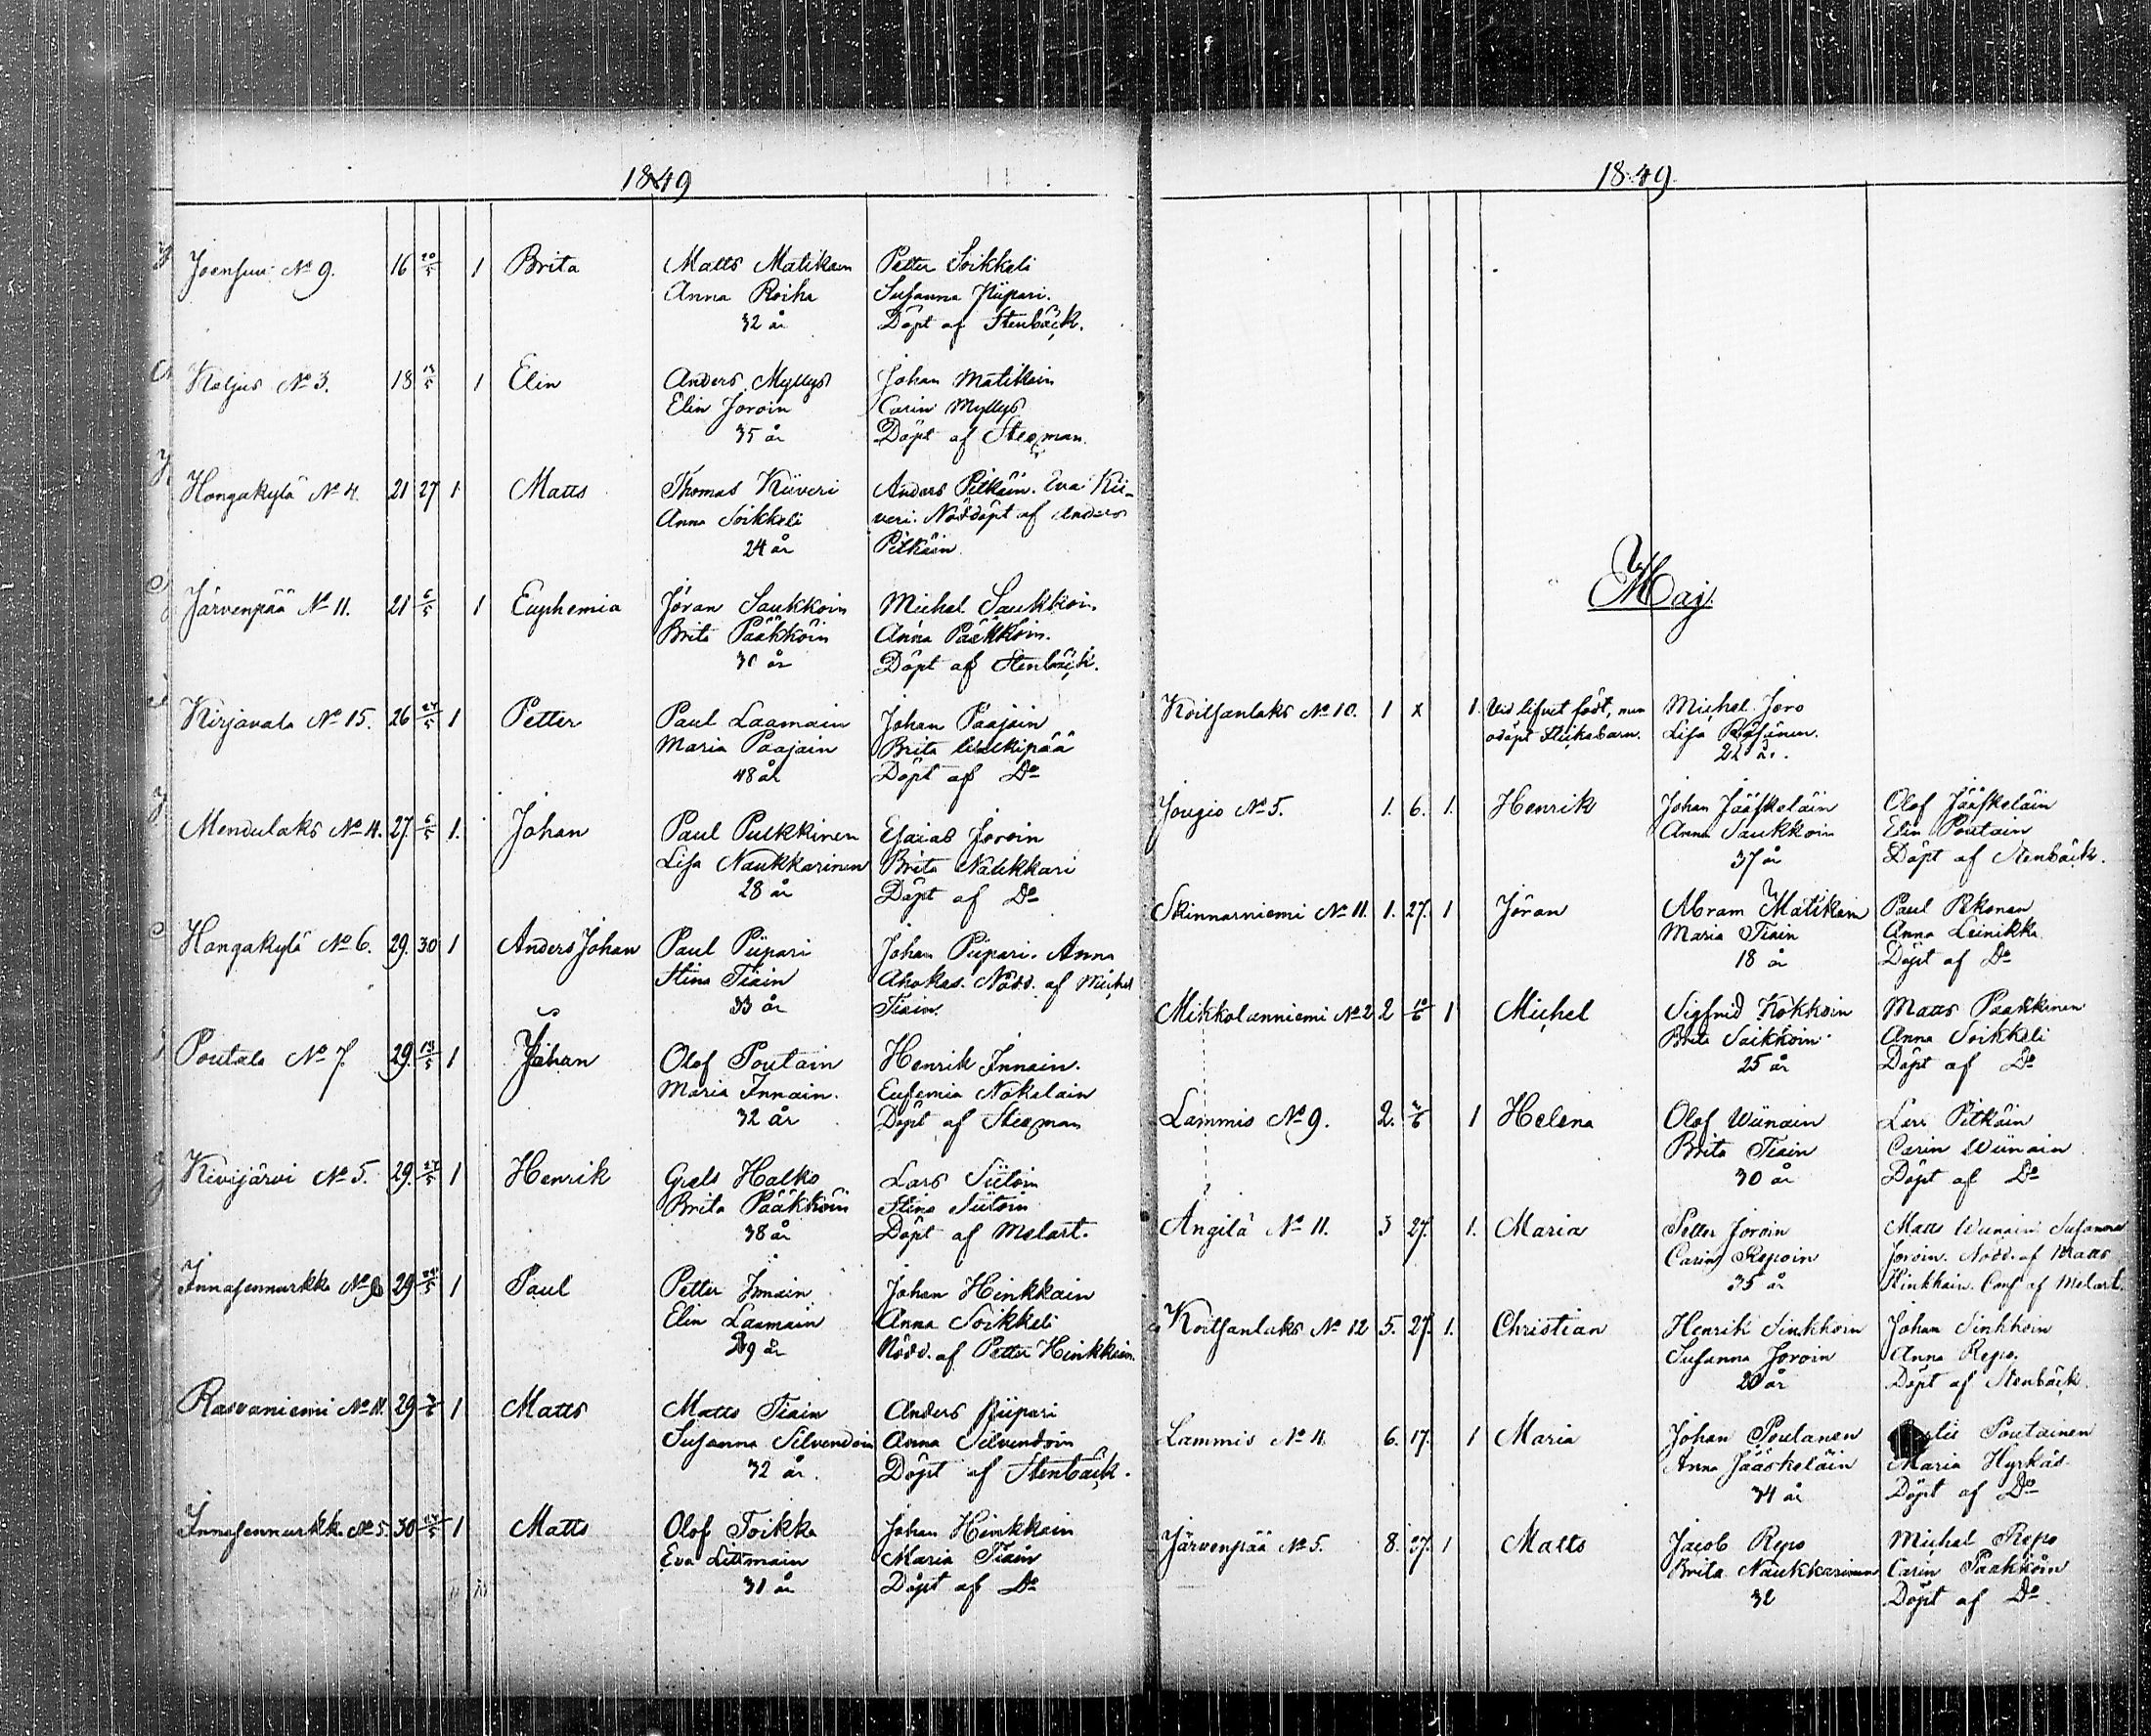 1849
Joensuu No 9. 16 20/5 1 Brita Matts Matikain Petter Soikkeli
Anna Roiha Susanna Piipari.
32 år Döpt af Stenbäck.
Keljus No 3. 18 13/5 1 Elin Anders Myllys Johan Matikain
Elin Joroin Carin Myllys
35 år Döpt af Stegman.
Hongakylä No 4. 21 27 1 Matts Thomas Kiiveri Anders Pitkäin. Eva Kii-
Anna Soikkeli veri. Nöddöpt af Anders
24 år Pitkäin
Järvenpää No 11. 21 6/5 1 Euphemia Jöran Saukkoin Michel Saukkoin.
Brita Pääkköin Anna Pääkköin.
år Döpt af Stenbäck.
Kirjavala No 15. 26 27/5 1 Petter Paul Laamain Johan Paajain
Maria Paajain Brita Walkipää
48 år Döpt af Do
Mendulaks No 4. 27 6/5 1. Johan Paul Pulkkinen Esaias Joroin
Lisa Naukkarinen Brita Naukkari
28 år Döpt af Do
Hongakylä No 6. 29. 30 1 Anders Johan Paul Piipari Johan Piipari. Anna
Stina Tiain Ahokas. Nödd. af Michel
33 år Tiain.
Poutala No 7. 29. 13/5 1 Johan Olof Poutain Henrik Innain.
Maria Innain. Eufemia Nokelain
32 år Döpt af Stegman
Kivijärvi No 5. 29. 27/5 1 Henrik Grels Halko Lars Siitoin
Brita Pääkköin Stina Siitoin
38 år Döpt af Melart.
Innasennurkka No 29 /5 1 Paul Petter Innain Johan Hinkkain
Elin Laamain Anna Soikkeli
29 år Nödd. af Petter Hinkkain.
Rasvaniemi No 11. 29 1 Matts Matts Tiain Anders Piipari
Susanna Silvendoin Anna Silvendoin
32 år. Döpt af Stenbäck.
Innasennurkk. No 5. 30 /5 1 Matts Olof Toikka Johan Hinkkain
Eva Littmain Maria Tiain
31 år Döpt af Do
1849
Maj.
Koitsanlaks No 10. 1 x 1 Vid lifvet född, men Michel Jero
odöpt flickebarn. Lisa Räsänen.
22 år.
Jougio No 5. 1. 6. 1. Henrik Johan Jääskeläin Olof Jääskeläin
Anna Saukkoin Elin Poutain
37 år Döpt af Stenbäck.
Skinnarniemi No 11. 1. 27. 1 Jöran Abram Matikain Paul Pekonen
Maria Tiain Anna Leinikka
18 år Döpt af Do
Mikkolanniemi No 2 2 10/6 1 Michel Sigfrid Kokkoin Matts Paakkinen
Brita Saikkoin Anna Soikkeli
25 år Döpt af Do
Lammis No 9. 2. /6 1 Helena Olof Wiinain Pitkäin
Brita Tiain Carin Wiinain
30 år Döpt af Do
Angilä No 11. 3 27. 1. Maria Petter Joroin Matts Wanain Susanna
Carin Repoin Joroin. Nödd. af Matts
35 år Hinkkain. Conf af Melart.
Koitsanlaks No 12 5. 27. 1. Christian Henrik Sinkkoin Johan Sinkkoin
Susanna Joroin Anna Repo.
20 år Döpt af Stenbäck.
Lammis No 4. 6. 17. 1 Maria Johan Poutanen Poutainen
Anna Jääskeläin Maria Hyrkäs
34 år Döpt af Do
Järvenpää No 5. 8. 27. 1 Matts Jacob Repo Michel Repo
Brita Naukkarinen Carin Paakkoin
32 Döpt af Do.